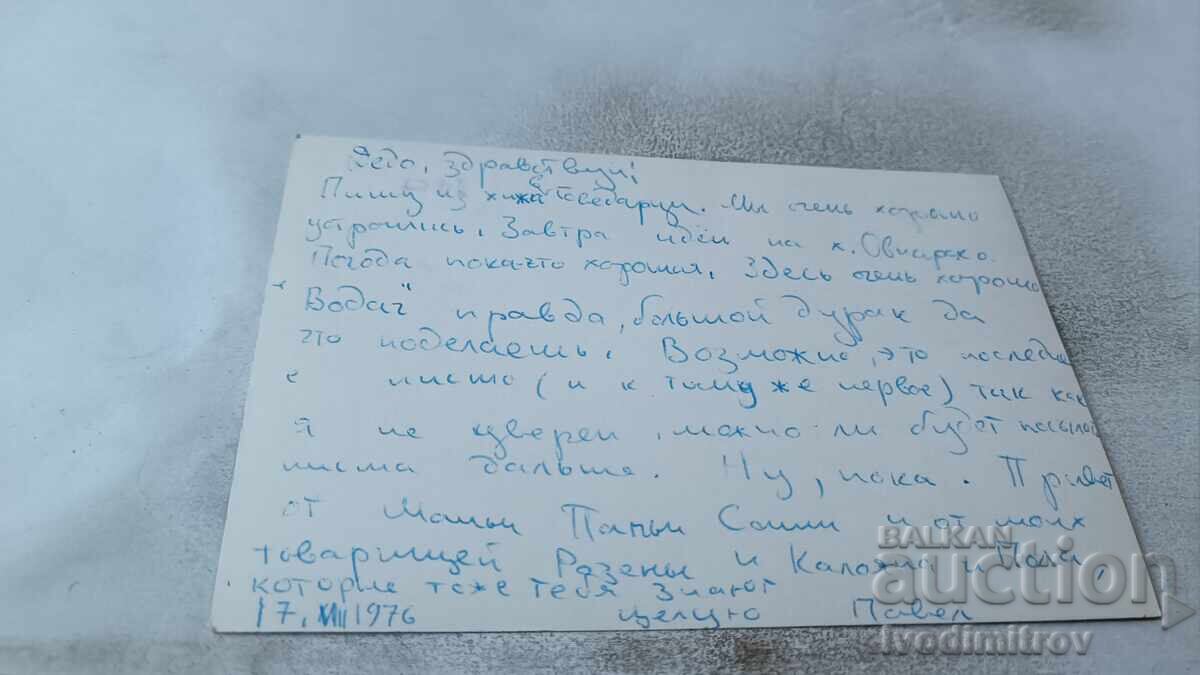 Дедо, здравствуй!
Пишу из хижа Беведарци. Мы очень хорошо
устроились. Завтра идём на х. Овнарско.
Погода пока что хорошая. Здесь очень хорошо
"Водач" правда, большой дурак да
что поделаешь. Возможно, это последне
е писмо (и к тому же первое) так как
я не уверен, можно ли будет посылат
писма дальше. Ну, пока. Привет
от Мамы Папы Саши и от моих
товарищей Розены и Калояна и Поли,
которые тоже тебя знают
17. VIII 1976 целую Павел
BALKAN
auction
ivodimitrov